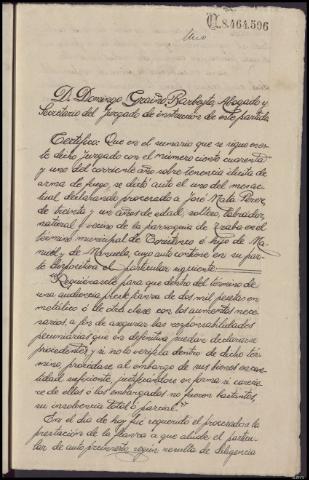 Q.8.464.596
Uno
D. Domingo Graiño Barbeyto, Abogado y
Secretario del Juzgado de instrucción de este partido.
Certifico: Que en el sumario que se sigue en es-
te dicho Juzgado con el número ciento cuarenta
y uno del corriente año sobre tenencia ilícita de
arma de fuego, se dictó auto el uno del mes ac-
tual declarando procesado a José Mata Pérez,
de treinta y un años de edad, soltero, labrador,
natural y vecino de la parroquia de en el
término municipal de é hijo de Ma-
nuel y de Manuela, cuyo auto contiene en su par-
te dispositiva el particular siguiente
"Requiérasele para que dentro del término de
una audiencia preste fianza de dos mil pesetas en
metálico ó de otra clase con los aumentos nece-
sarios, a fin de asegurar las responsabilidades
pecuniarias que en definitiva puedan declararse
procedentes y si no lo verifica dentro de dicho tér-
mino, procédase al embargo de sus bienes en can-
tidad suficiente, justificándose en forma si carecie-
re de ellos o los embargados no fueren bastantes,
su insolvencia total ó parcial."
En el día de hoy fue requerido el procesado a la
prestación de la fianza a que alude el particu-
lar de auto preinserto, según resulta de diligencia